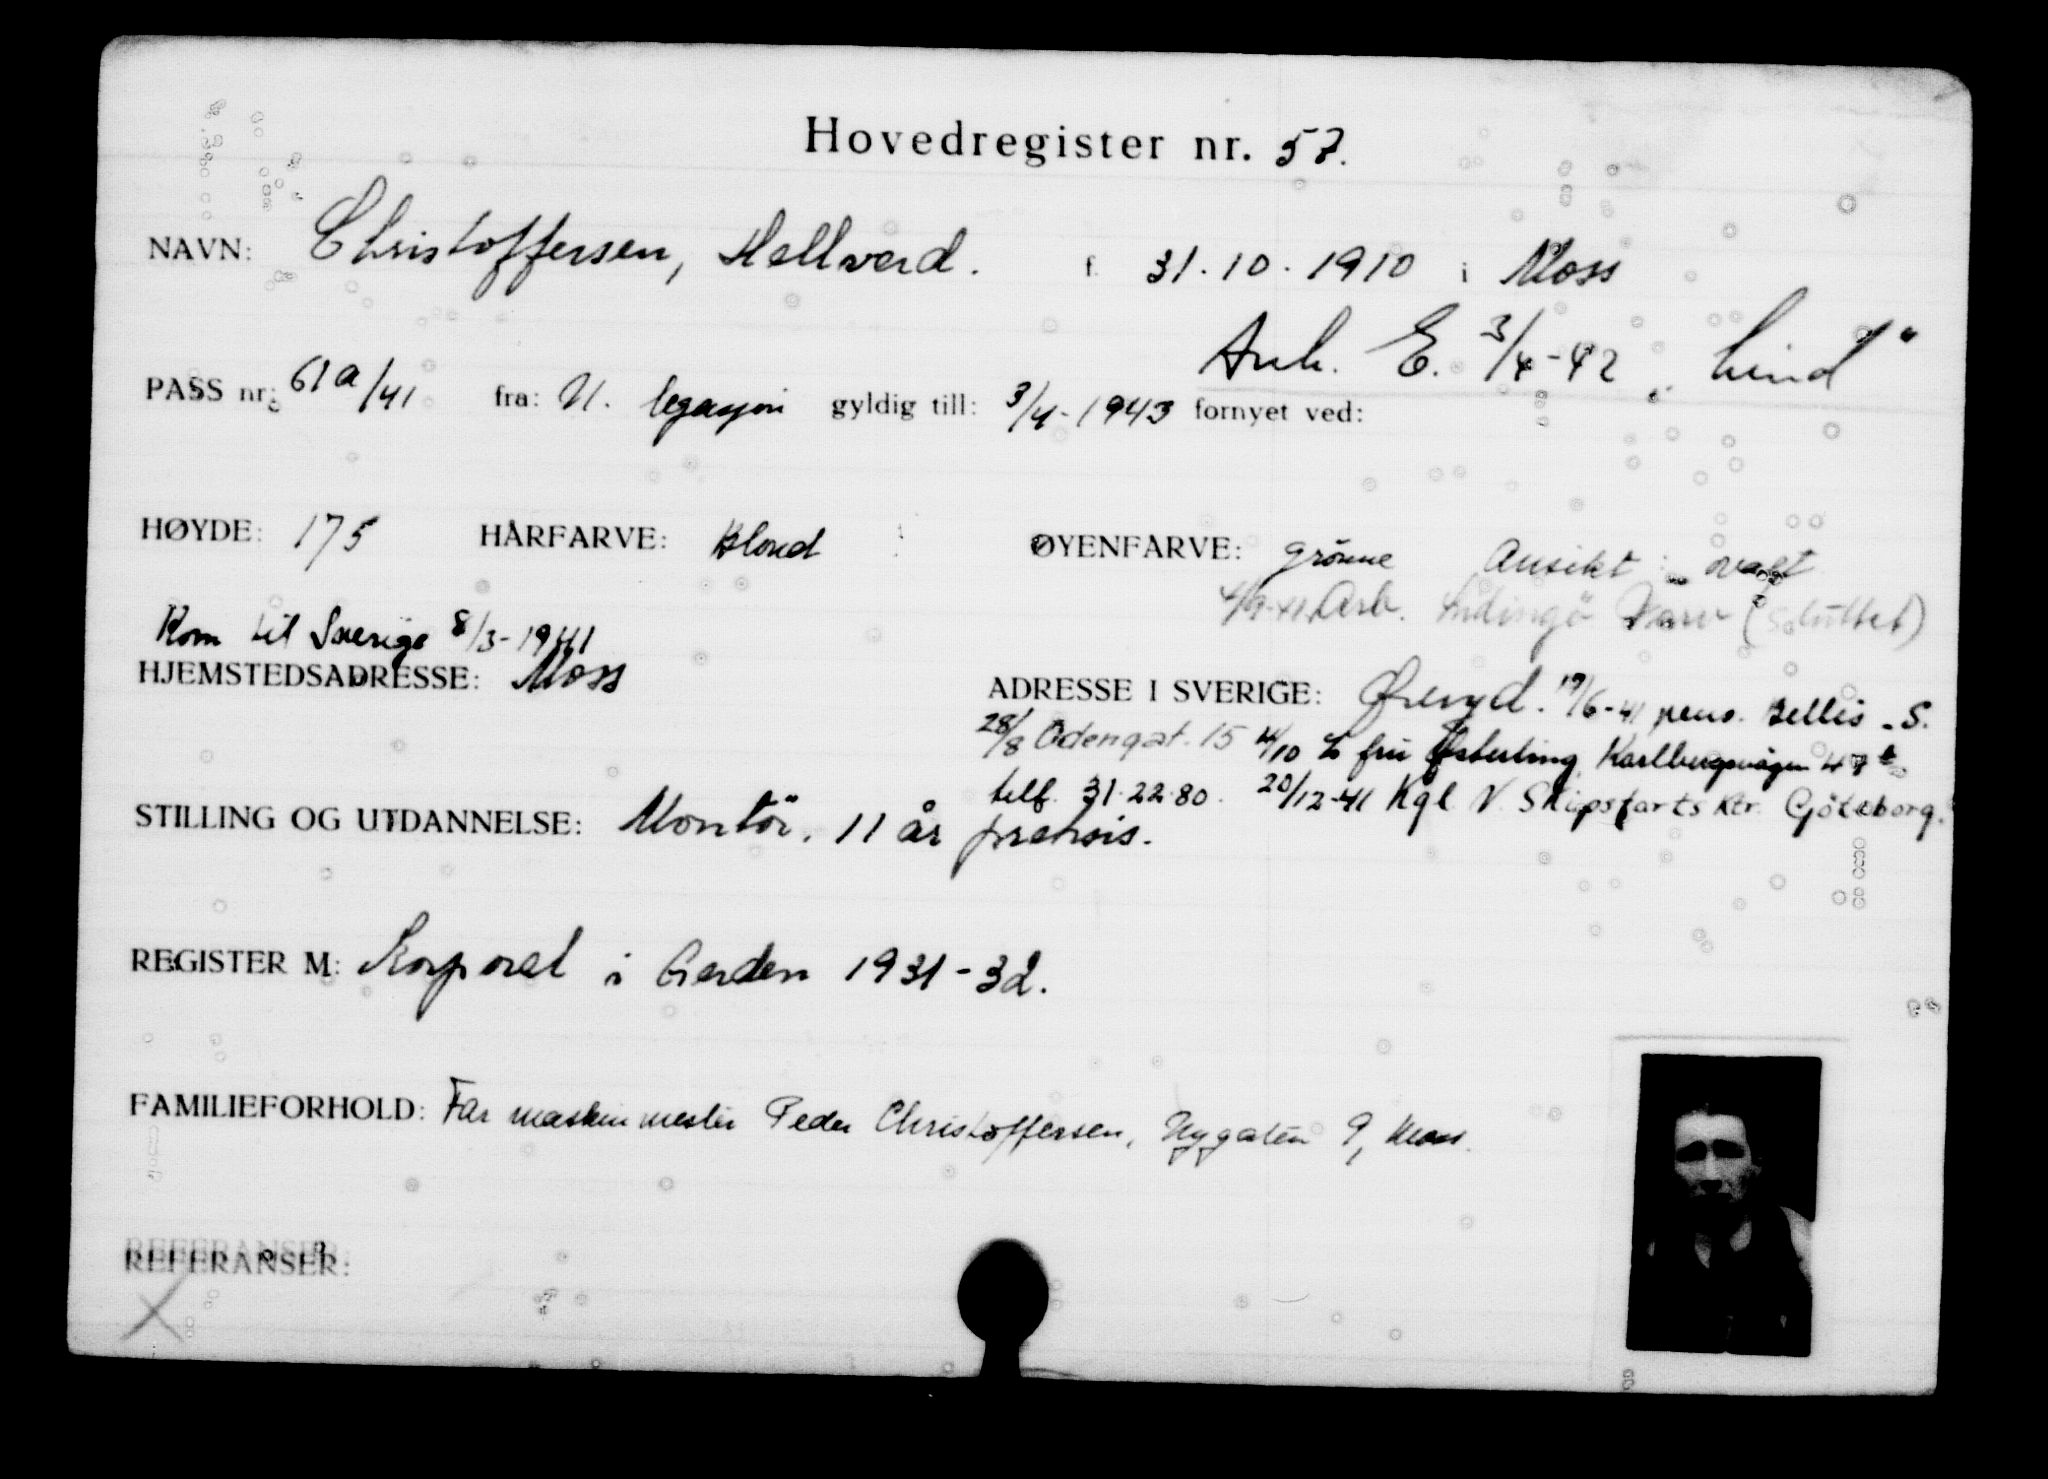 Hovedregister nr. 57.
NAVN: Christoffersen, Hallvard. f. 31.10.1910 i Moss
Ank. E. 3/4-42 „Lind"
PASS nr: 61a/41 fra: N. legasjon gyldig till: 3/4-1943 fornyet ved:
HØYDE: 175 HÅRFARVE: Blond ØYENFARVE: grönne Ansikt: ovalt
4/9-41 Arb. Lidingö Varv (Sluttet)
Kom til Sverige 8/3-1941
HJEMSTEDSADRESSE: Moss ADRESSE I SVERIGE: Öreryd. 19/6-41 pens. Bellis - S.
28/8 Odengat. 15 4/10 c/o fru Österling, Karlbergsvägen
telf. 31.22.80. 20/12-41 Kgl N. Skipsfarts ktr. Göteborg.
STILLING OG UTDANNELSE: Montör, 11 år praksis.
REGISTER M: Korporal i Garden 1931-32.
FAMILIEFORHOLD: Far maskinmester Peder Christoffersen, Nygaten 9, Moss.
REFERANSER: